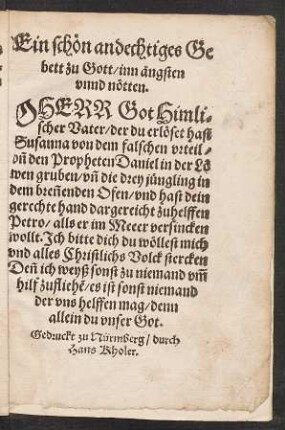 Ein schön andechtiges Ge
bett zu Gott/inn ängsten
vnnd nötten.
O HERR Got Himli-
scher Vater/der du erlöset hast
Susanna von dem falschen vrteil/
vñ den Propheten Daniel in der Lö
wen gruben/vñ die drey jüngling in
dem breñenden Ofen/vnd hast dein
gerechte hand dargereicht zuhelffen
Petro/alls er im Meeer versincken
wollt. Ich bitte dich du wöllest mich
vnd alles Christlichs Volck stercken
Deñ ich weyß sonst zu niemand vm̃
hilf zufliehẽ/es ist sonst niemand
der vns helffen mag/denn
allein du vnser Got.
Gedruckt zu Nürmberg/durch
Hans Kholer.